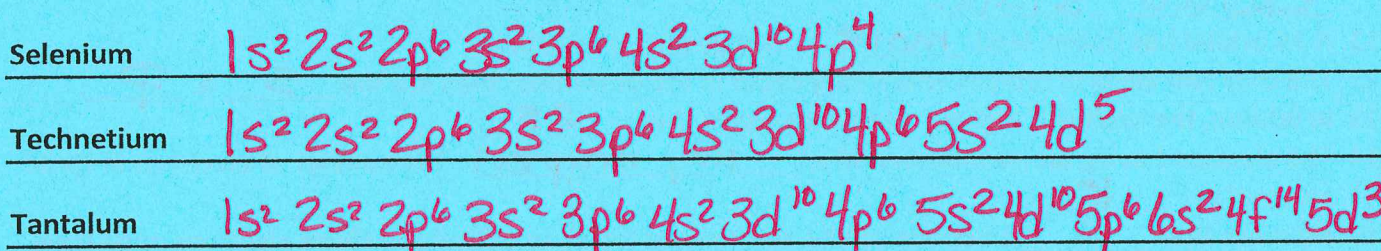 Selenium 1s² 2s² 2p⁶ 3s² 3p⁶ 4s² 3d¹⁰ 4p⁴
Technetium 1s² 2s² 2p⁶ 3s² 3p⁶ 4s² 3d¹⁰ 4p⁶ 5s² 4d⁵
Tantalum 1s² 2s² 2p⁶ 3s² 3p⁶ 4s² 3d¹⁰ 4p⁶ 5s² 4d¹⁰ 5p⁶ 6s² 4f¹⁴ 5d³